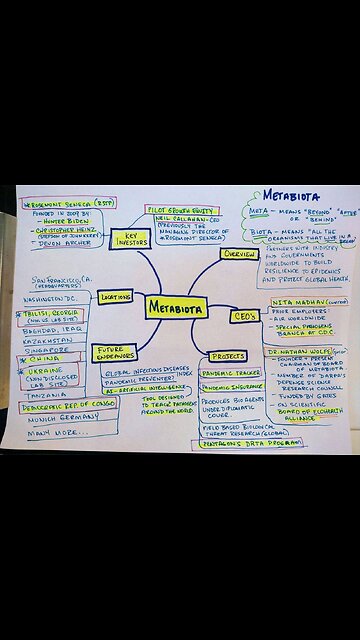 METABIOTA
META - MEANS "BEYOND" "AFTER"
OR "BEHIND"
BIOTA - MEANS "ALL THE
ORGANISMS THAT LIVE IN A
*ROSEMONT SENECA (RSTP)
FOUNDED IN 2009 BY
- HUNTER BIDEN
- CHRISTOPHER HEINZ
(STEPSON OF JOHN KERRY)
- DEVON ARCHER
PILOT GROWTH EQUITY
NEIL CALLAHAN - CEO
(PREVIOUSLY THE
MANAGING DIRECTOR OF
*ROSEMONT SENECA)
KEY
INVESTORS
OVERVIEW
PARTNERS WITH INDUSTRY
AND GOVERNMENTS
WORLDWIDE TO BUILD
RESILIENCE TO EPIDEMICS
AND PROTECT GLOBAL HEALTH.
SAN FRANCISCO, CA.
(HEADQUARTERS)
WASHINGTON D.C.
* TBILISI, GEORGIA
LAB SITE)
BAGHDAD, IRAQ
KAZAKHSTAN
SINGAPORE
* CHINA
* UKRAINE
(NON DISCLOSED
LAB SITE)
TANZANIA
DEMOCRATIC REP. OF CONGO
MUNICH GERMANY
MANY MORE...
LOCATIONS
METABIOTA
CEO's
NITA MADHAV
PRIOR EMPLOYERS:
- AIR WORLDWIDE
- SPECIAL PATHOGENS
BRANCH AT C.D.C.
DR. NATHAN WOLFE
- FOUNDER +
CHAIRMAN OF BOARD
OF METABIOTA.
- MEMBER OF DARPA'S
DEFENSE SCIENCE
RESEARCH COUNCIL
- FUNDED BY GATES
- ON SCIENTIFIC
BOARD OF ECOHEALTH
ALLIANCE
FUTURE
ENDEAVORS
GLOBAL INFECTIOUS DISEASES
PANDEMIC PREVENTION INDEX
AI - ARTIFICIAL INTELLIGENCE
TOOL DESIGNED
TO TRACK PATHOGENS
AROUND THE WORLD.
PROJECTS
PANDEMIC TRACKER
PANDEMIC INSURANCE
PRODUCES BIO AGENTS
UNDER DIPLOMATIC
COVER
FIELD BASED BIOLOGICAL
THREAT RESEARCH (GLOBAL)
PENTAGON'S DRTA PROGRAM